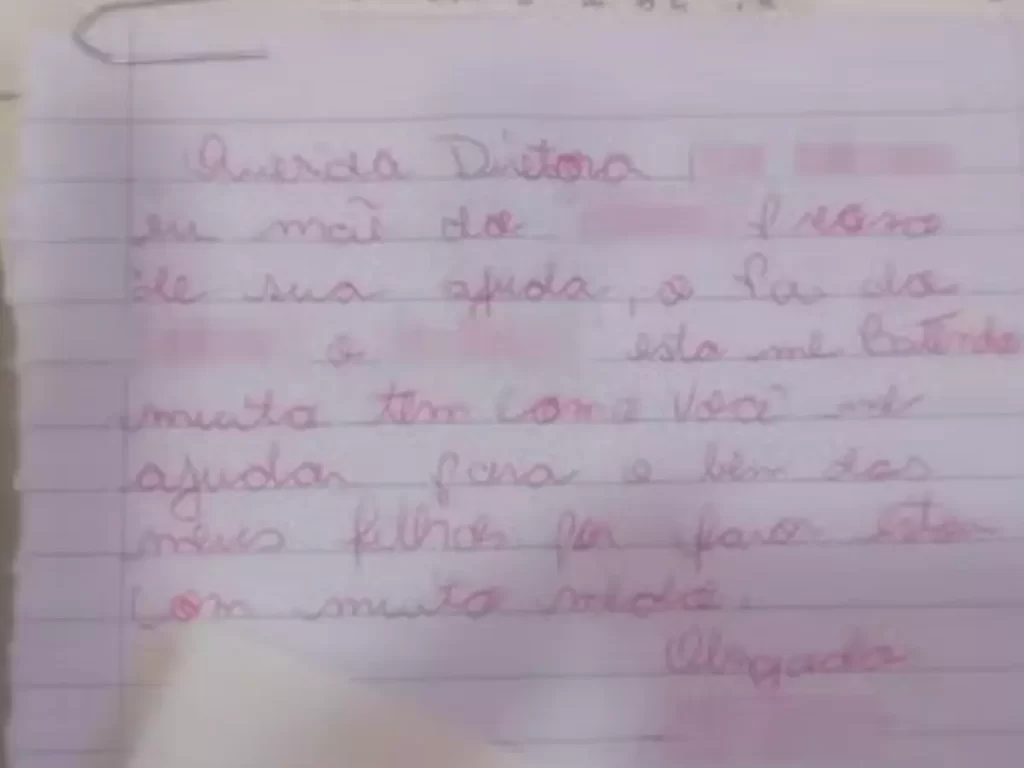 Querida Diretora
eu mãe da preciso
de sua ajuda, o pai da
e esta me Batendo
muito tem como você me
ajudar para o bem dos
meus filhos por favor estou
com muito medo.
Obrigada